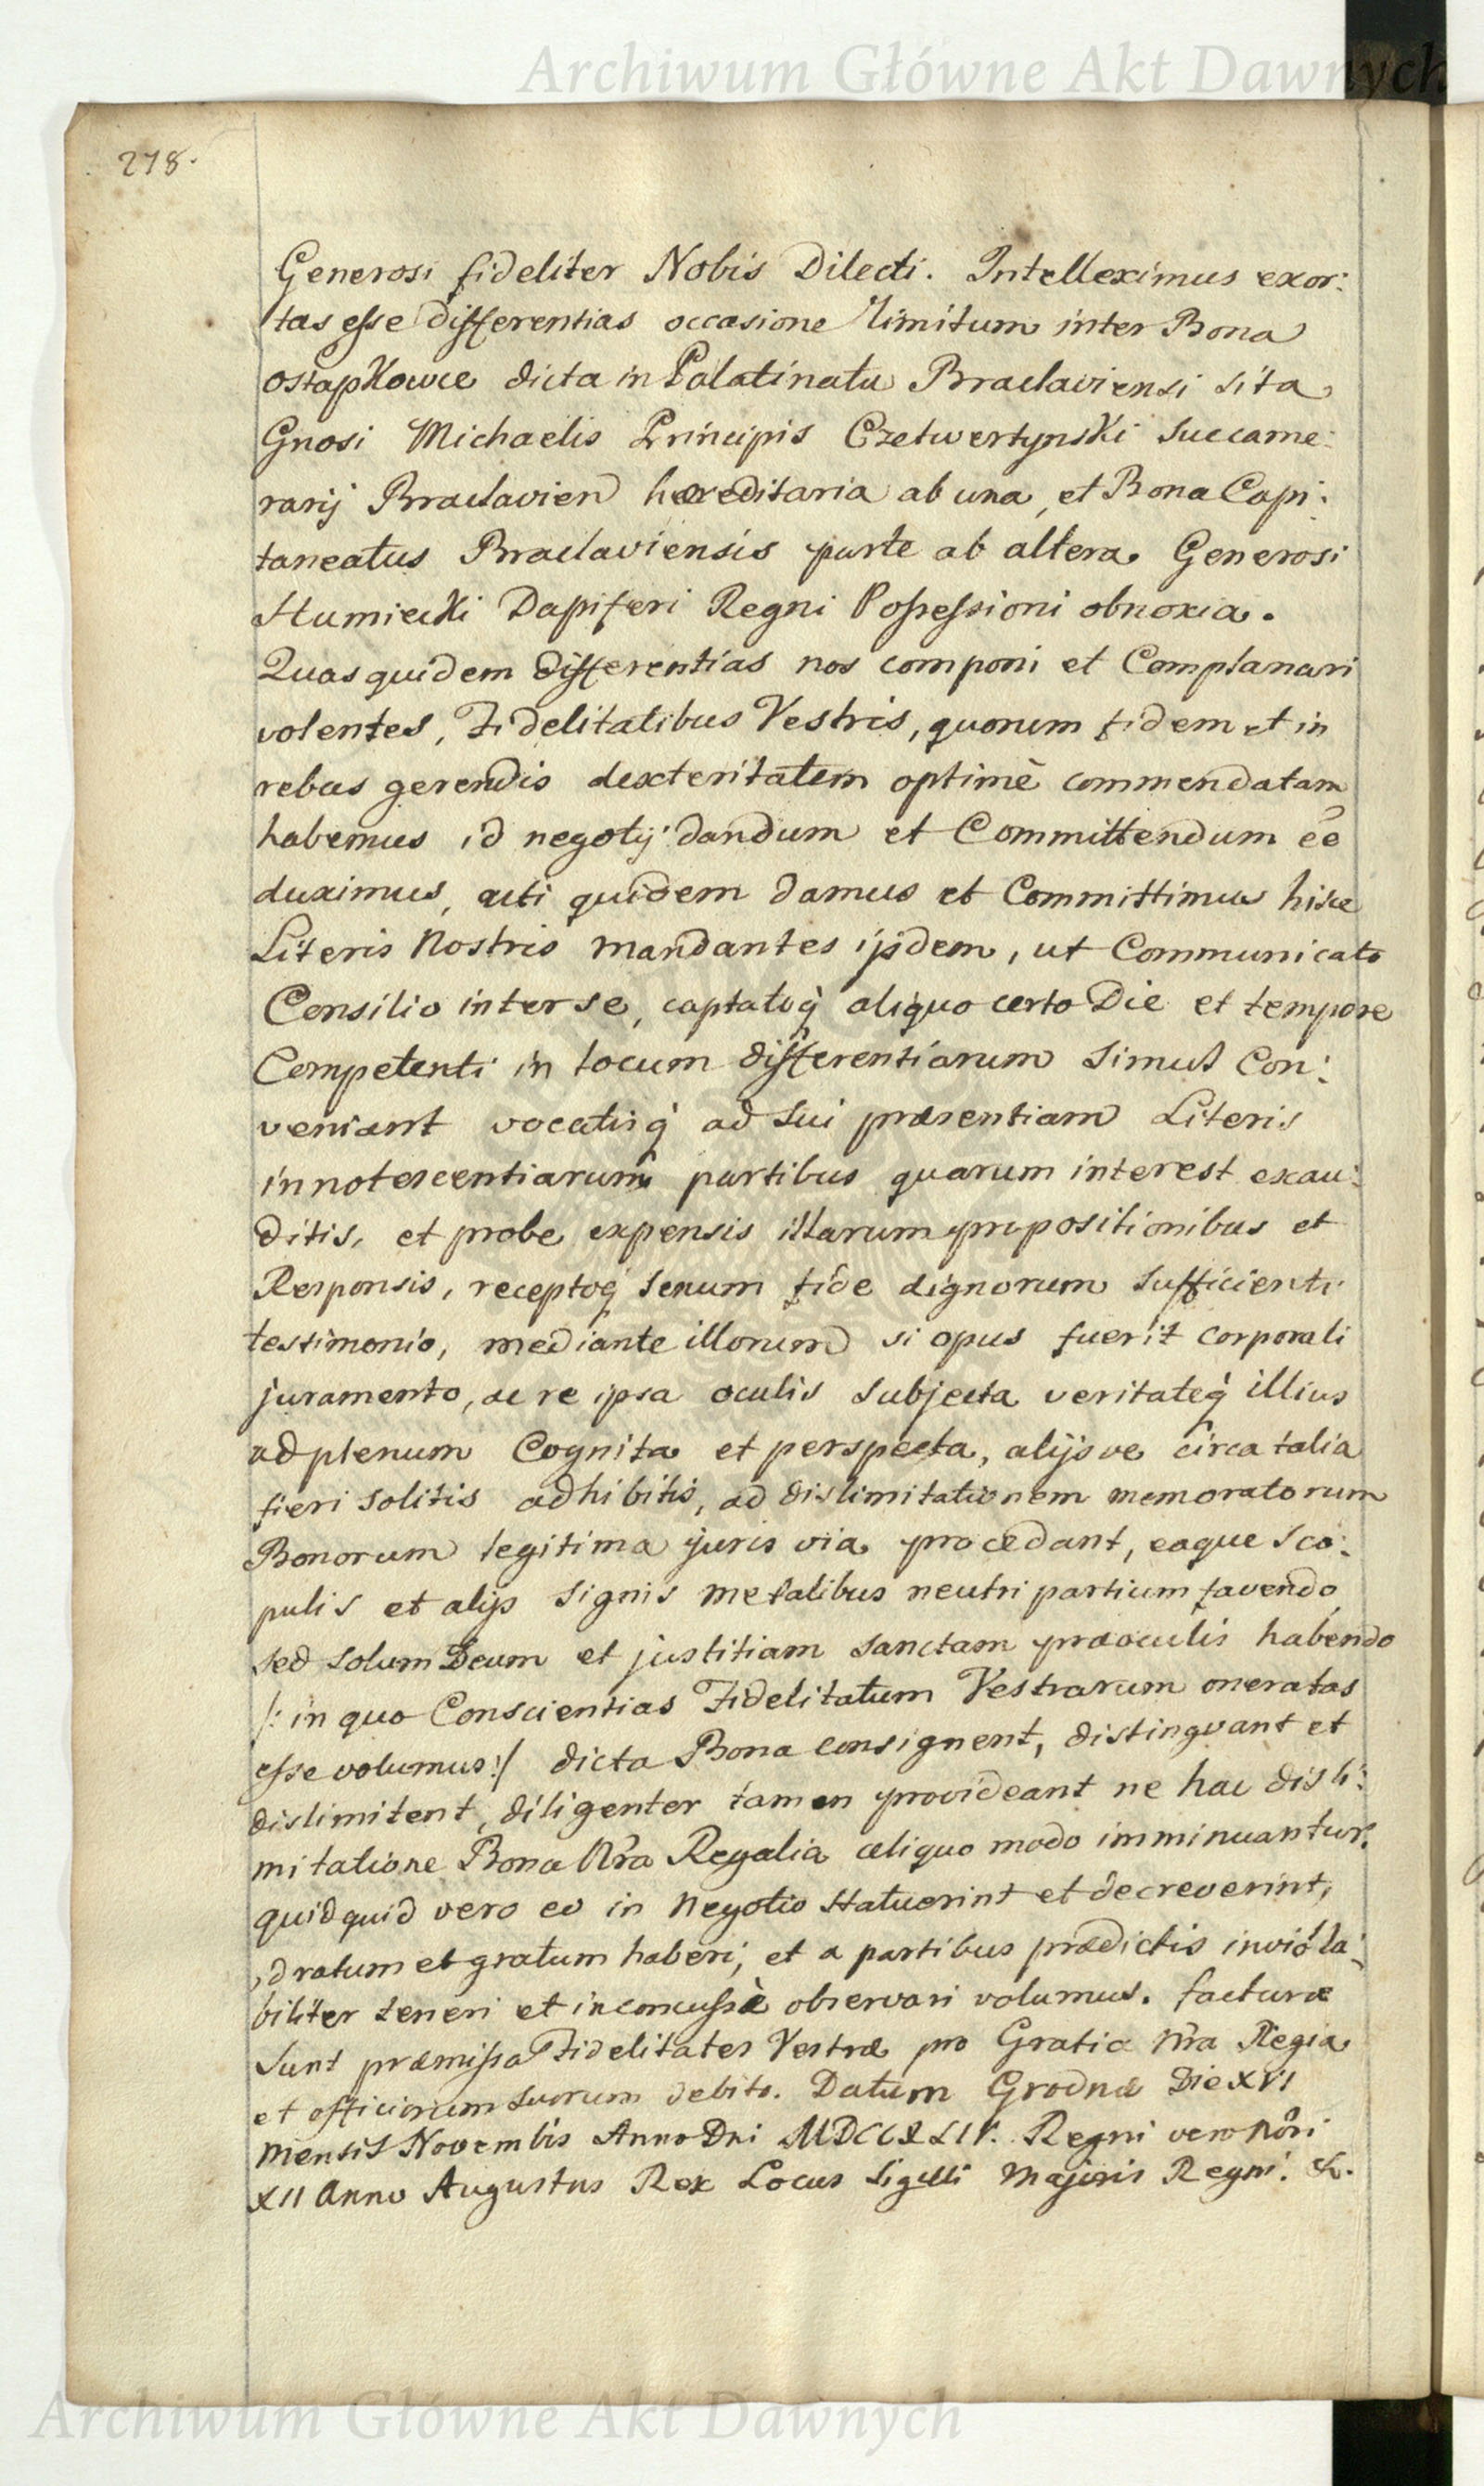 Archiwum Główne Akt Dawnych
278.
Generosi fideliter Nobis Dilecti. Intelleximus exor:
tas esse differentias occasione limitum inter Bona
Ostapkowce dicta in Palatinatu Braclaviensi sita
Gnosi Michaelis Principis Czetwertynski Succame:
rarij Braclavien hæreditaria ab una, et Bona Capi:
taneatus Braclaviensis parte ab altera Generosi
Humiecki Dapiferi Regni Possessioni obnoxia.
Quas quidem differentias nos componi et Complanari
volentes, Fidelitatibus Vestris, quorum fidem et in
rebus gerendis dexteritatem optimè commendatam
habemus id negotij dandum et Committendum ēē
duximus, uti quidem damus et Committimus hisce
Literis Nostris mandantes ijsdem, ut Communicato
Consilio inter se, captatoq́ aliquo certo Die et tempore
Competenti in locum differentiarum simul Con:
veniant vocatisq́ ad sui præsentiam Literis
innotescentiarum partibus quarum interest exau:
ditis, et probe expensis illarum propositionibus et
Responsis, receptoq́ senum fide dignorum sufficienti
testimonio, mediante illorum si opus fuerit corporali
juramento, ac re ipsa oculis subjecta veritateq́ illius
ad plenum Cognita et perspecta, alijsve circa talia
fieri solitis adhibitis, ad dislimitationem memoratorum
Bonorum legitima juris via procedant, eaque sco:
pulis et alijs signis metalibus neutri partium favendo
sed solum Deum et justitiam sanctam præ oculis habendo
/: in quo Conscientias Fidelitatum Vestrarum oneratas
esse volumus :/ dicta Bona consignent, distinguant et
dislimitent, diligenter tamen provideant ne hac disli:
mitatione Bona Nr̃a Regalia aliquo modo imminuantur.
quidquid vero eo in negotio statuerint et decreverint,
id ratum et gratum haberi, et a partibus prædictis inviola:
biliter teneri et inconcussè observari volumus. facturæ
sunt præmissa Fidelitates Vestræ pro Gratia Nr̃a Regia
et officiorum suorum debito. Datum Grodnæ Die XVI
Mensis Novembris Anno Dni MDCCXLIV. Regni vero Nr̃i
XII Anno Augustus Rex Locus Sigilli Majoris Regni. &.
Archiwum Główne Akt Dawnych